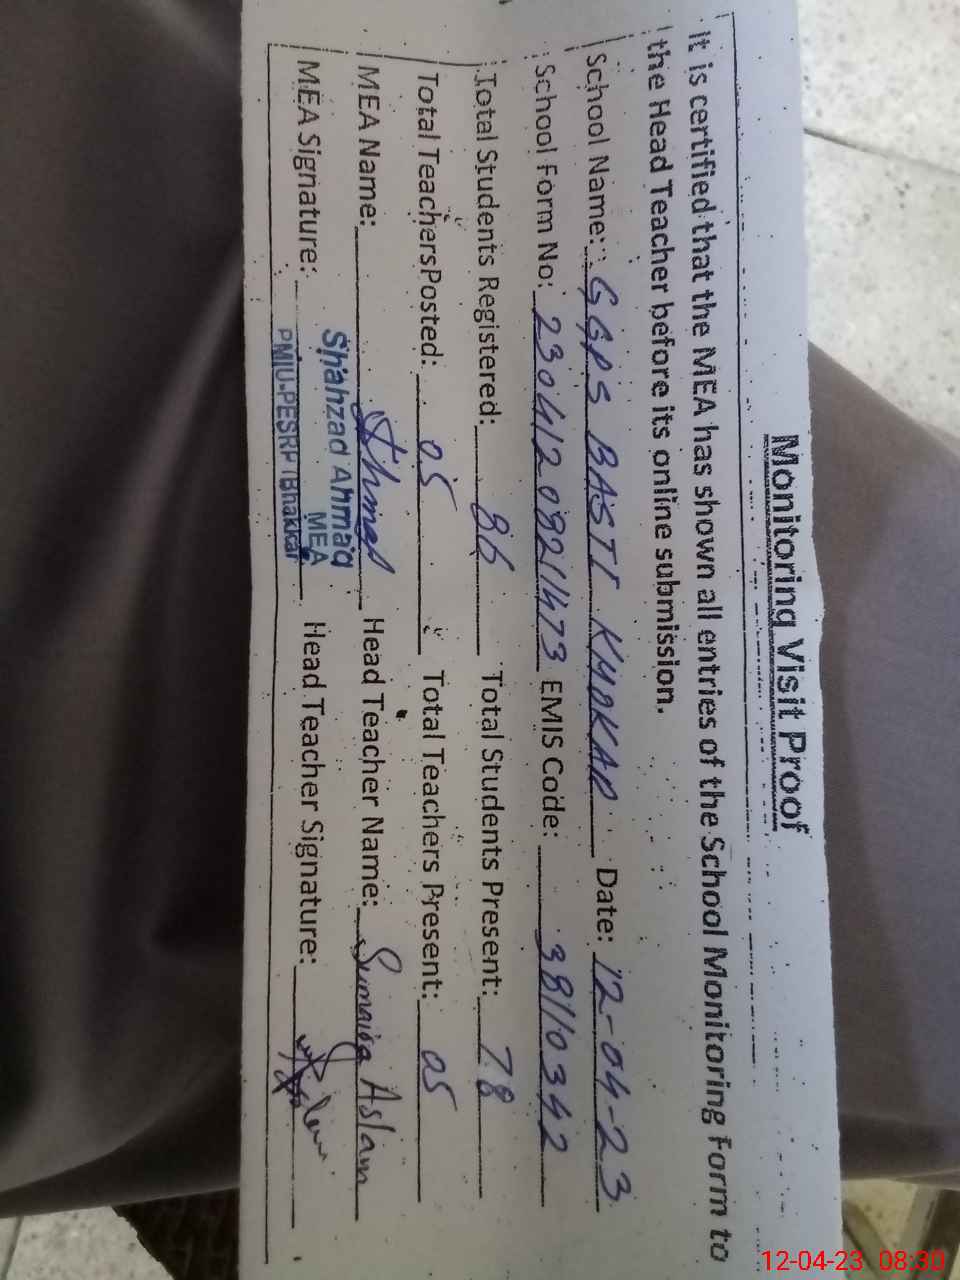 Monitoring Visit Proof
It is certified that the MEA has shown all entries of the School Monitoring Form to
the Head Teacher before its online submission.
School Name: GGPS BASTI KHOKHAR Date: 12-04-23
School Form No: 23041208211473 EMIS Code: 38110342
Total Students Registered: 86 Total Students Present: 78
Total Teachers Posted: 05 Total Teachers Present: 05
MEA Name: Head Teacher Name: Sumaira Aslam
MEA Signature: Head Teacher Signature:
Shahzad Ahmad
MEA
PMIU-PESRP (Bhakkar
12-04-23 08:30